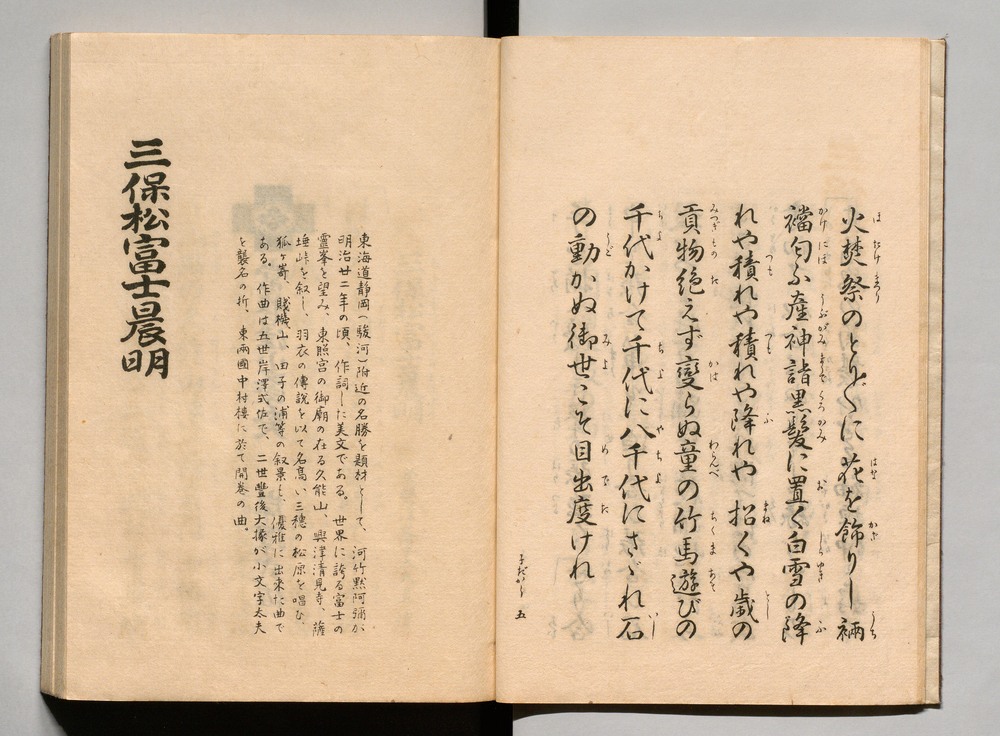 火焚祭のとり〴〵に花を飾りし裲
襠匂ふ産神詣黒髮に置く白雪の降
れや積れや積れや降れや招くや歳の
貢物絶えず變らぬ童の竹馬遊びの
千代かけて千代に八千代にさゞれ石
の動かぬ御世こそ目出度けれ
五
三保松富士晨明
東海道静岡(駿河)附近の名勝を題材として、河竹黙阿彌が
明治廿二年の頃、作詞した美文である。世界に誇る富士の
靈峯を望み、東照宮の御廟の在る久能山、興津清見寺、薩
埵峠を叙し、羽衣の傳説を以て名高い三穗の松原を唱ひ、
狐ヶ崎、賤機山、田子の浦等の叙景も、優雅に出來た曲で
ある。作曲は五世岸澤式佐で、二世豐後大掾が小文字太夫
を襲名の折、東兩國中村樓に於て開巻の曲。